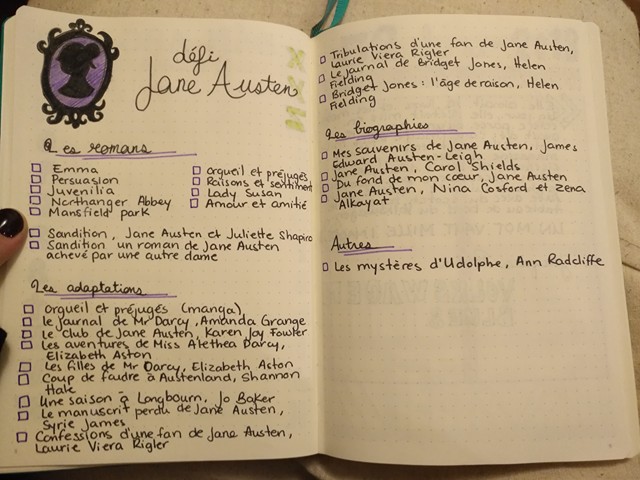 défi
Jane Austen
Les romans
Emma
Persuasion
Juvenilia
Northanger Abbey
Mansfield park
orgueil et préjugés
Raisons et sentiment
Lady Susan
Amour et amitié
Sandition, Jane Austen et Juliette Shapiro
Sandition un roman de Jane Austen
achevé par une autre dame
Les adaptations
orgueil et préjugés (manga)
le journal de Mr Darcy, Amanda Grange
Le Club de Jane Austen, Karen Joy Fowler
Les aventures de Miss Alethea Darcy,
Elizabeth Aston
Les filles de Mr Darcy, Elizabeth Aston
Coup de foudre à Austenland, Shannon
Hale
Une saison à Longbourn, Jo Baker
Le manuscrit perdu de Jane Austen,
Syrie James
Confessions d'une fan de Jane Austen,
Laurie Viera Rigler
Tribulations d'une fan de Jane Austen,
Laurie Viera Rigler
Le Journal de Bridget Jones, Helen
Fielding
Bridget Jones : l'âge de raison, Helen
Fielding
Les biographies
Mes souvenirs de Jane Austen, James
Edward Austen-Leigh
Jane Austen, Carol Shields
Du fond de mon cœur, Jane Austen
Jane Austen, Nina Cosford et Zena
Alkayat
Autres
Les mystères d'Udolphe, Ann Radcliffe